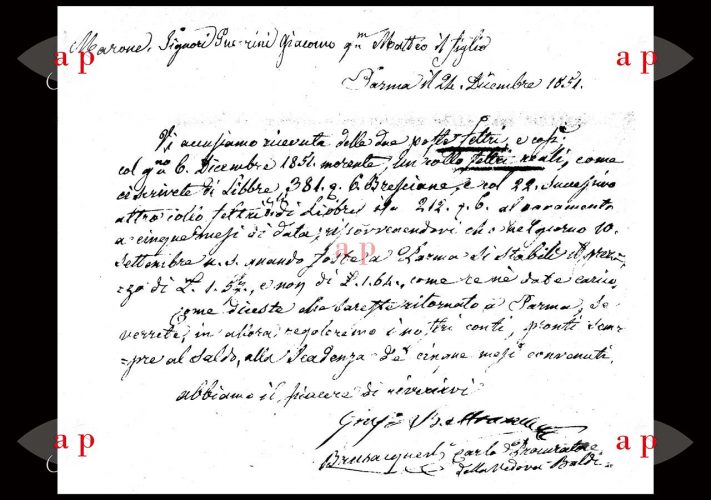 Marone. Signori Guerrini Giacomo qm Matteo il figlio
Parma il 24. Dicembre 1851.
Vi accusiamo ricevuta delle due poste feltri, e così
col g.no 6. Dicembre 1851. morente, un rollo feltri reali, come
ci scrivete di Libbre 381. q. 6. Bresciane, e col 22. sucessivo
altro idio feltri di Libbre 212. q. 6. al
a cinque mesi di data; risovvenendovi che nel giorno 10
Settembre u. s. quando foste a Parma si stabilì il prez=
zo di L. 1. e non di L. 1.64., come ce nè date carico,
come diceste che sareste ritornato a Parma, se
verrete, in allora regoleremo i nostri conti, pronti sem=
=pre al saldo, alla Scadenza de' cinque mesi convenuti.
abbiamo il piacere di riverirvi
Carlo Procuratore
della Vedova Baldi
a p
a p
a p
a p
a p